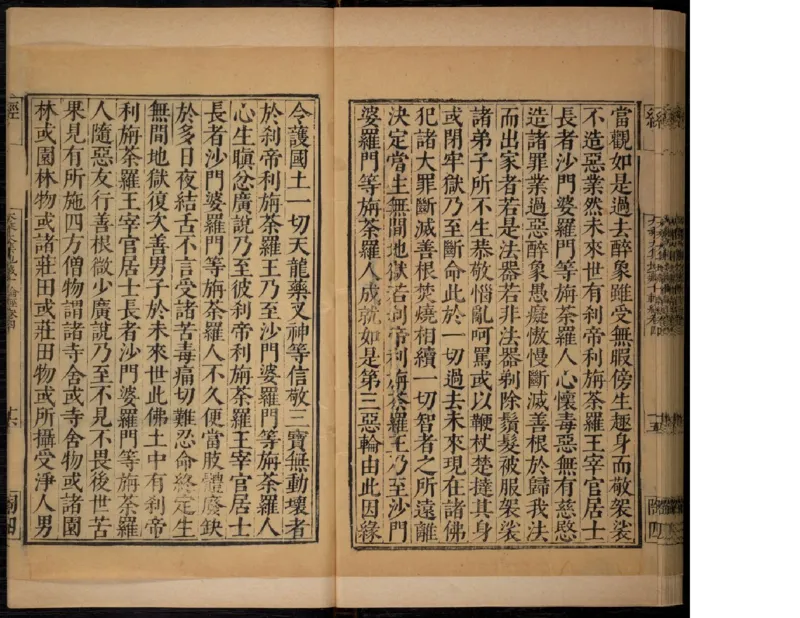 當觀如是過去醉象雖受無暇傍生趣身而敬袈裟
不造惡業然未來世有刹帝利旃荼羅王宰官居士
長者沙門婆羅門等旃荼羅人心懷毒惡無有慈愍
造諸罪業過惡醉象愚癡憿慢斷滅善根於歸我法
而出家者若是法器若非法器剃除鬚髮被服袈裟
諸弟子所不生恭敬惱亂呵罵或以鞭杖楚撻其身
或閉牢獄乃至斷命此於一切過去未來現在諸佛
犯諸大罪斷滅善根焚燒相續一切智者之所遠離
決定當生無間地獄若刹帝利旃荼羅王乃至沙門
婆羅門等旃荼羅人成就如是第三惡輪由此因緣
令護國土一切天龍藥叉神等信敬三寶無動壞者
於刹帝利旃荼羅王乃至沙門婆羅門等旃荼羅人
心生瞋忿廣說乃至彼刹帝利旃荼羅王宰官居士
長者沙門婆羅門等旃荼羅人不久便當肢體廢缺
於多日夜結舌不言受諸苦毒痛切難忍命終定生
無間地獄復次善男子於未來世此佛土中有刹帝
利旃荼羅王宰官居士長者沙門婆羅門等旃荼羅
人隨惡友行善根微少廣說乃至不見不畏後世苦
果見有所施四方僧物謂諸寺舍或寺舍物或諸園
林或園林物或諸莊田或莊田物或所攝受淨人男